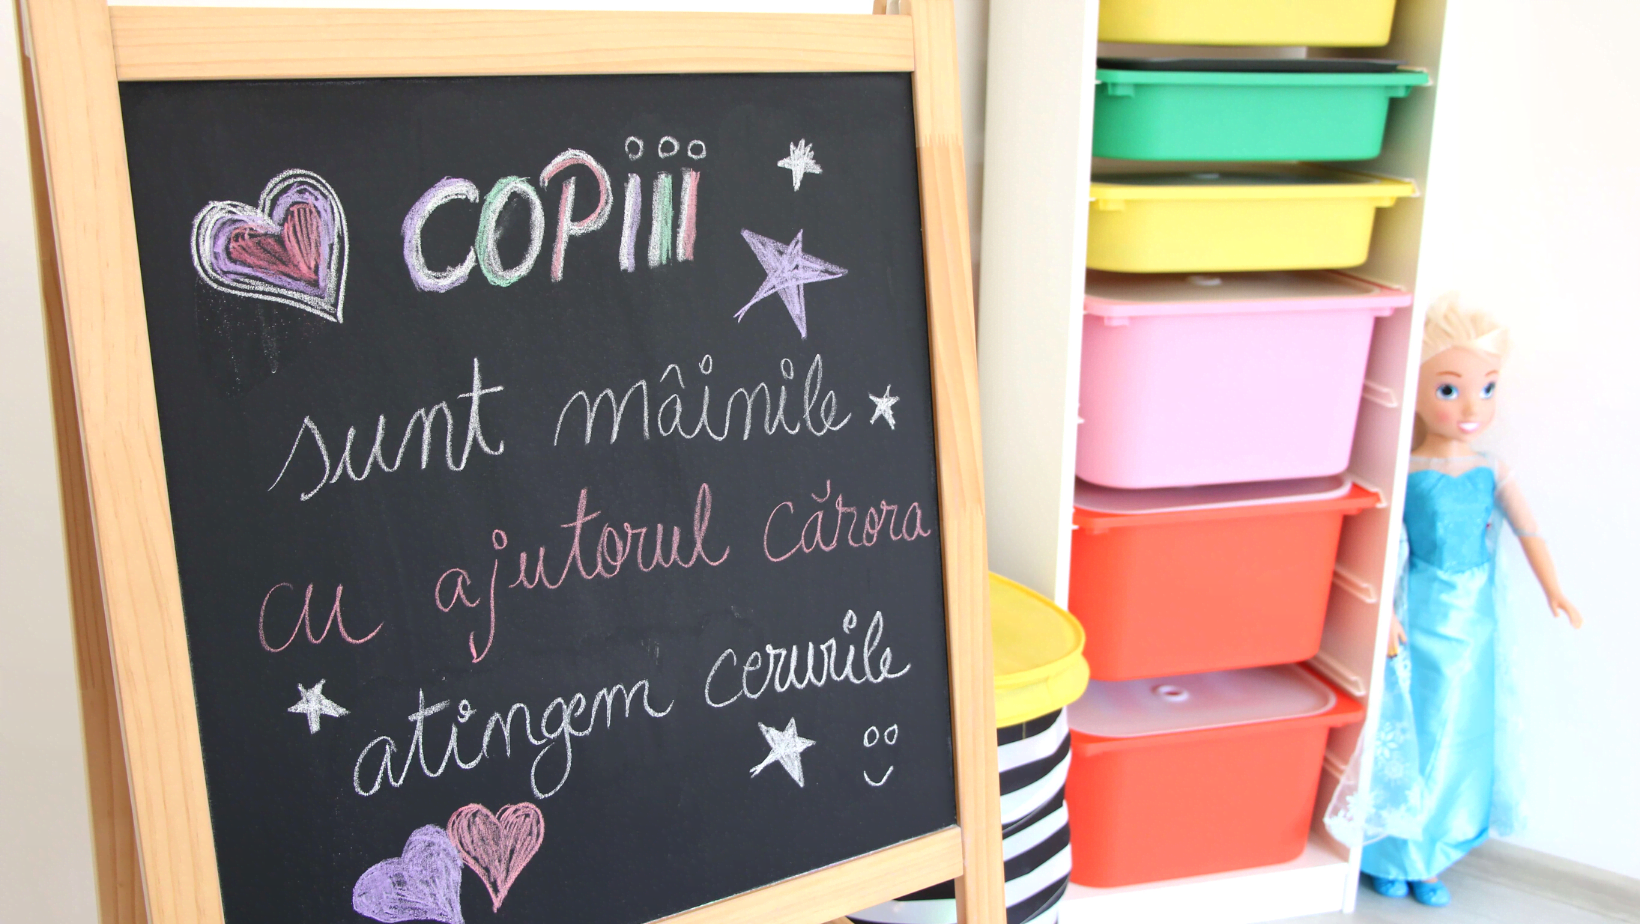 COPiii
sunt mâinile
cu ajutorul cărora
atingem cerurile